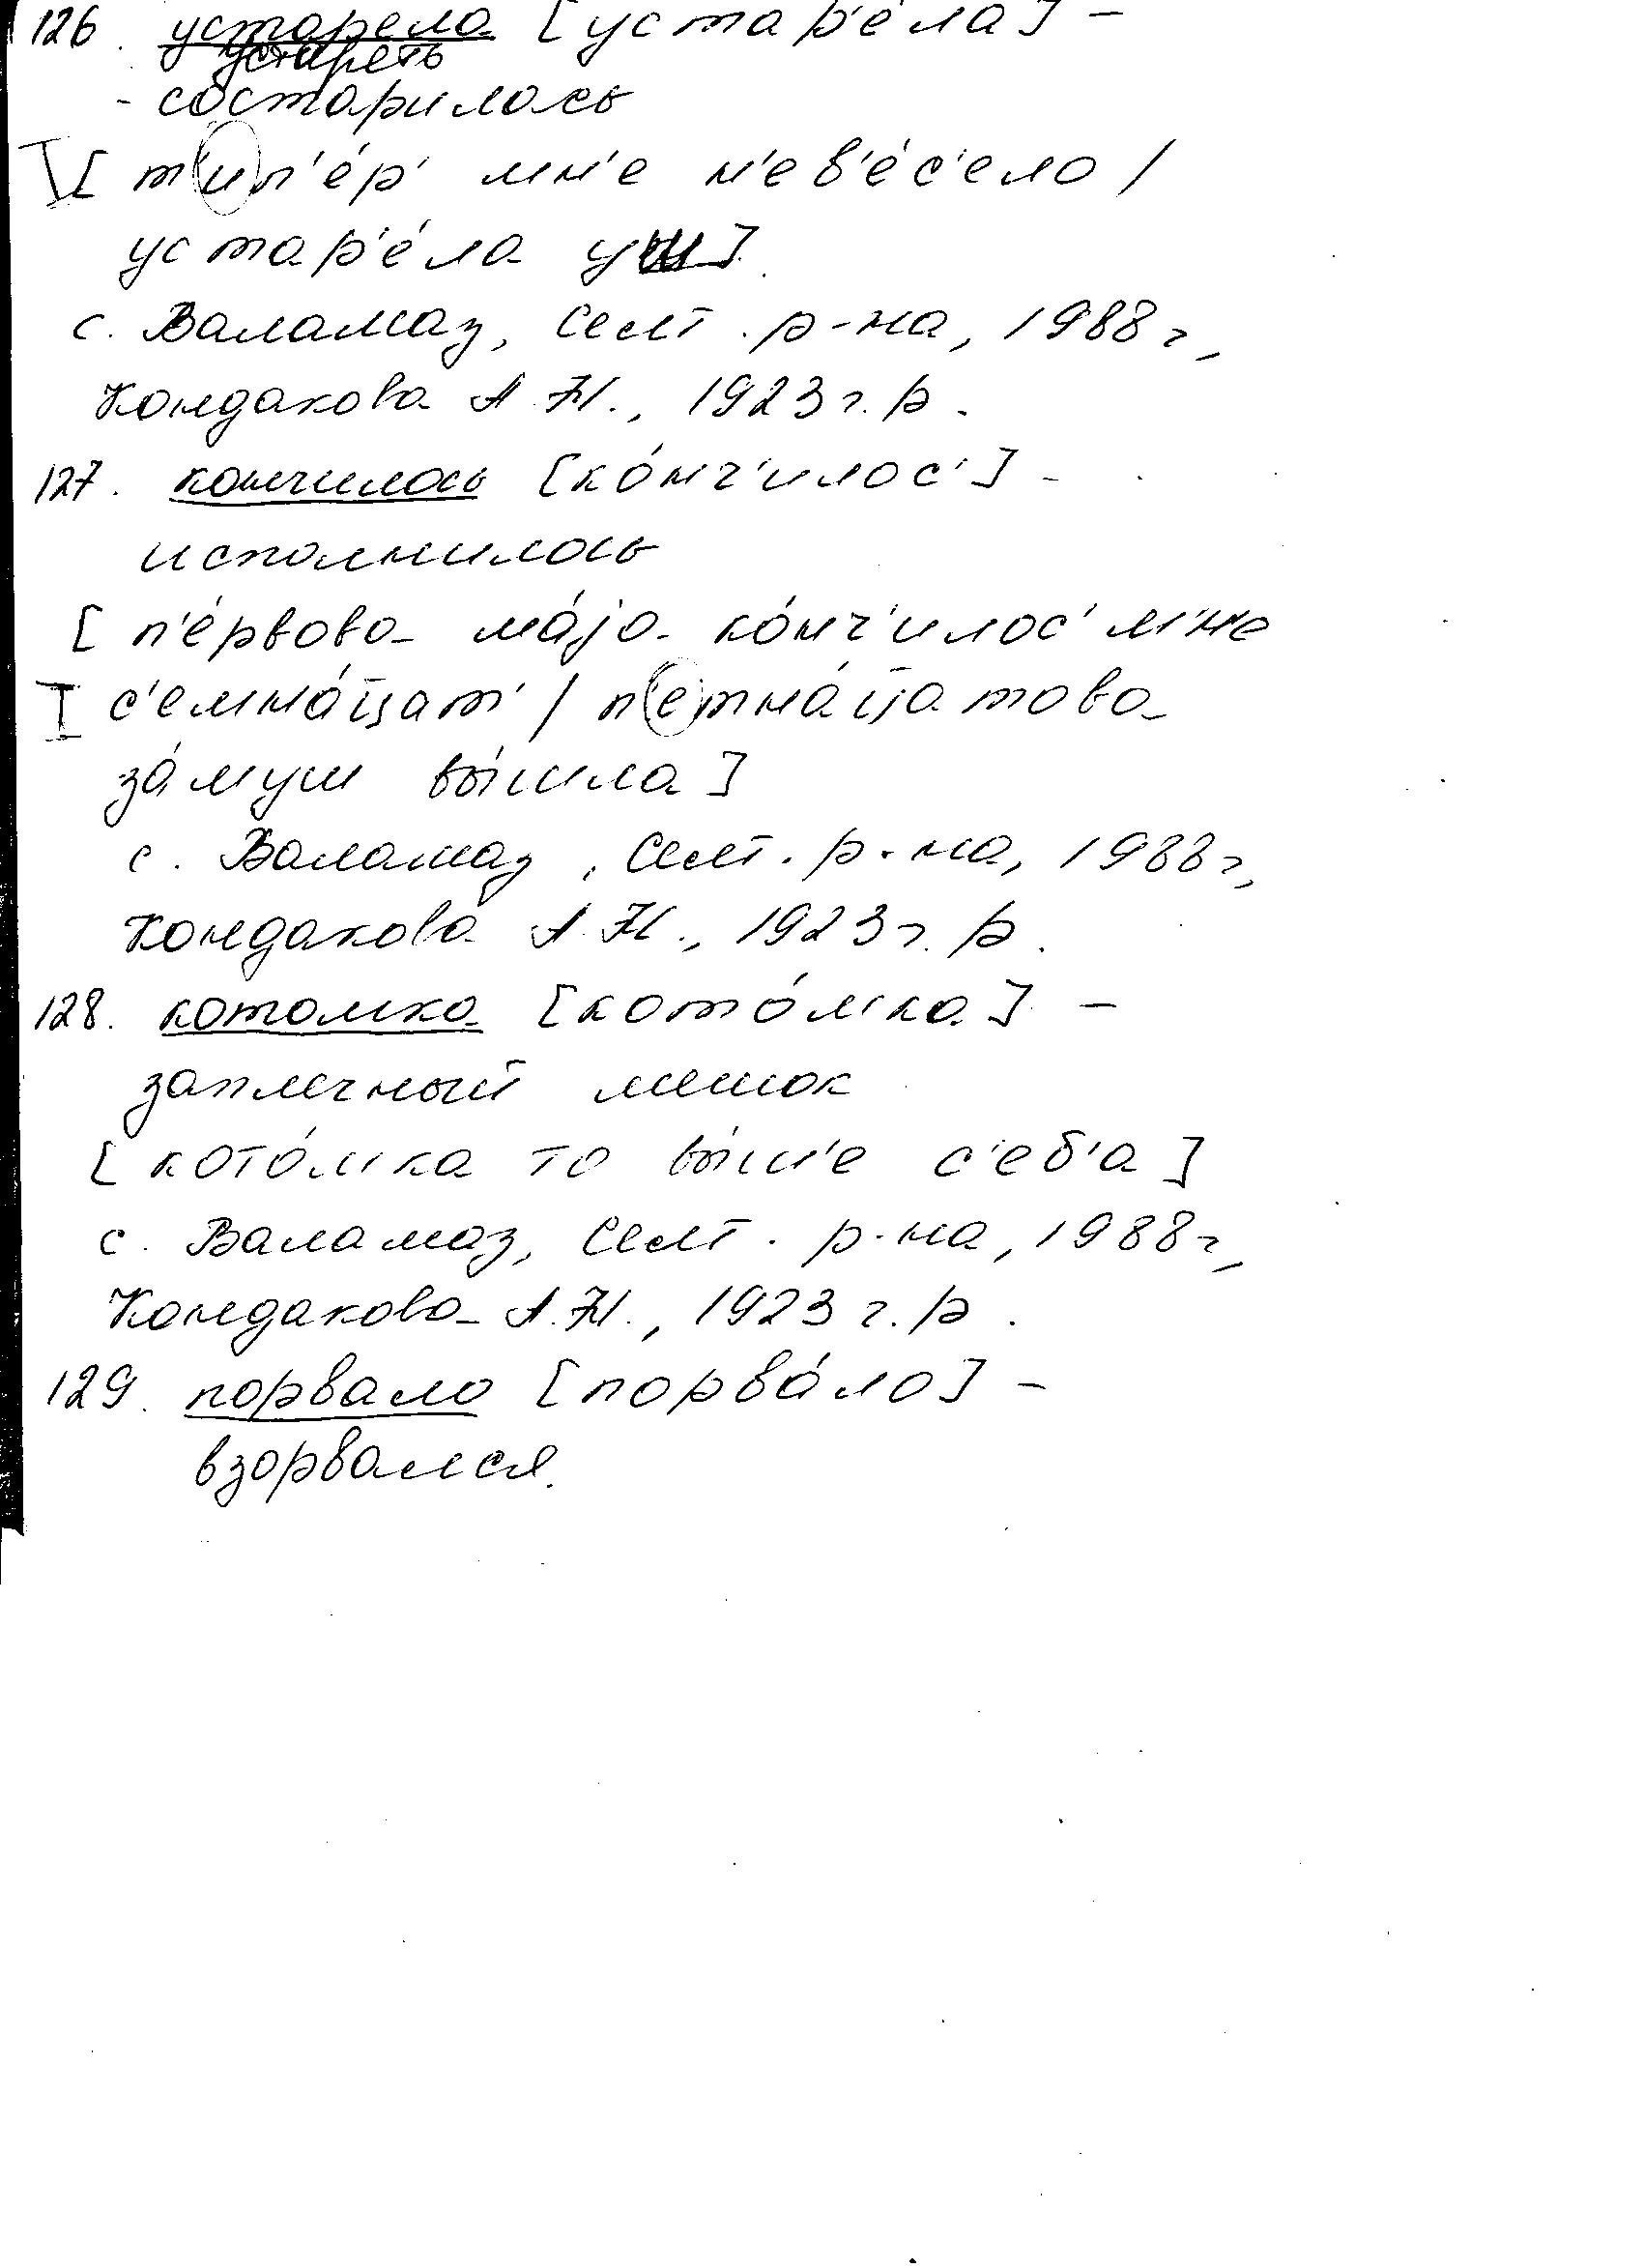 126. устарела [устар'е́ла] –
устареть
- состарилась
I [ т'ип'е́р' мн'е н'ев'е́с'ело /
устар'е́ла уш]
с. Валамаз, Селт. р-на, 1988 г.,
Кондакова А.Н., 1923 г. р.
127. кончилось [ко́нч'илос'] –
исполнилось
[ п'е́рвова ма́jа ко́нч'илос' мн'е
I с'емна́ц̄ат' / п'етна́ц̄атова
за́муш вы́шла ]
с. Валамаз, Селт. р-на, 1988 г.,
Кондакова А.Н., 1923 г. р.
128. котомка [кото́мка] –
заплечный мешок
[ кото́мка то вы́ш'е с'еб'а ]
с. Валамаз, Селт. р-на, 1988 г.,
Кондакова А.Н., 1923 г. р.
129. порвало [порва́ло] –
взорвался.